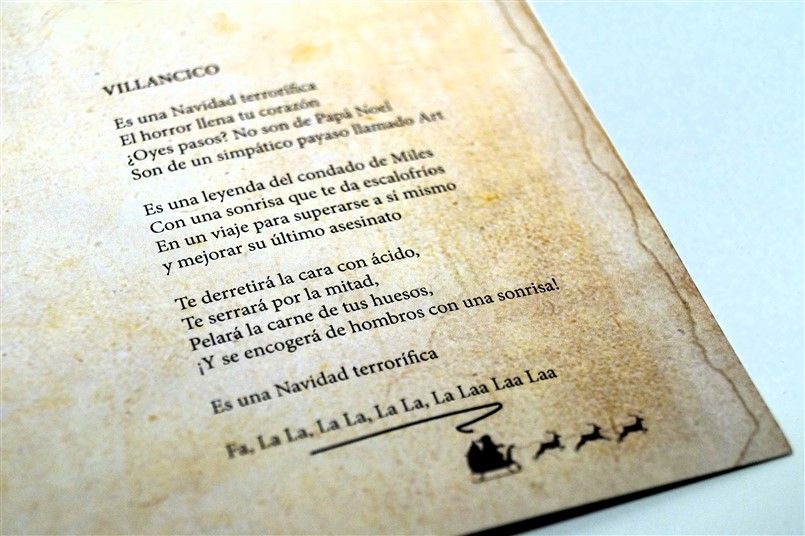 VILLANCICO
Es una Navidad terrorífica
El horror llena tu corazón
¿Oyes pasos? No son de Papá Noel
Son de un simpático payaso llamado Art
Es una leyenda del condado de Miles
Con una sonrisa que te da escalofríos
En un viaje para superarse a sí mismo
y mejorar su último asesinato
Te derretirá la cara con ácido,
Te serrará por la mitad,
Pelará la carne de tus huesos,
¡Y se encogerá de hombros con una sonrisa!
Es una Navidad terrorífica
Fa, La La, La La, La La, La Laa Laa Laa